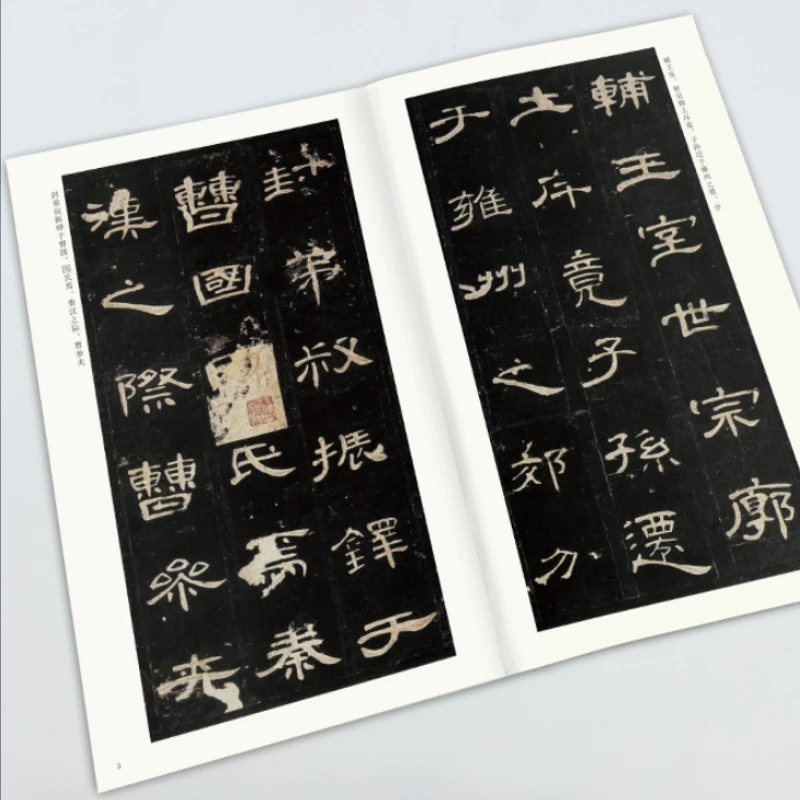 封弟叔振鐸于
曹國因氏焉秦
漢之際曹參夾
封弟叔振铎于曹国，因氏焉。秦汉之际，曹参夹
3
輔王室世宗廓
土斥竟子孫遷
于雍州之郊分
辅王室，世宗廓土斥竟，子孙迁于雍州之郊，分